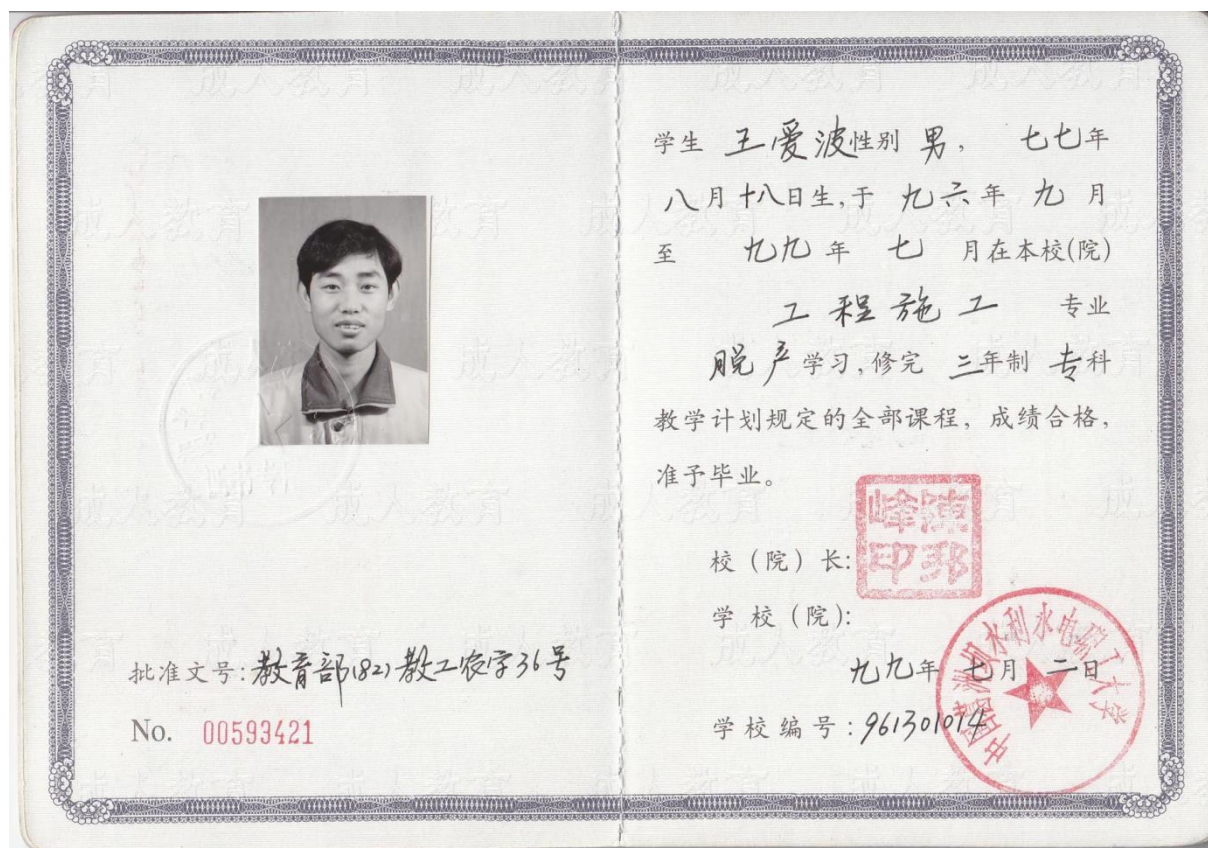 批准文号:教育部(82)教工农字36号
No. 00593421
学生 王爱波 性别 男, 七七年
八月十八日生,于 九六年 九 月
至 九九 年 七 月在本校(院)
工程施工 专业
脱产学习,修完 三年制 专科
教学计划规定的全部课程,成绩合格,
准予毕业。
校(院)长:
陈邦峰印
学校(院):
九九年 七月 二日
学校编号:961301014
成人教育